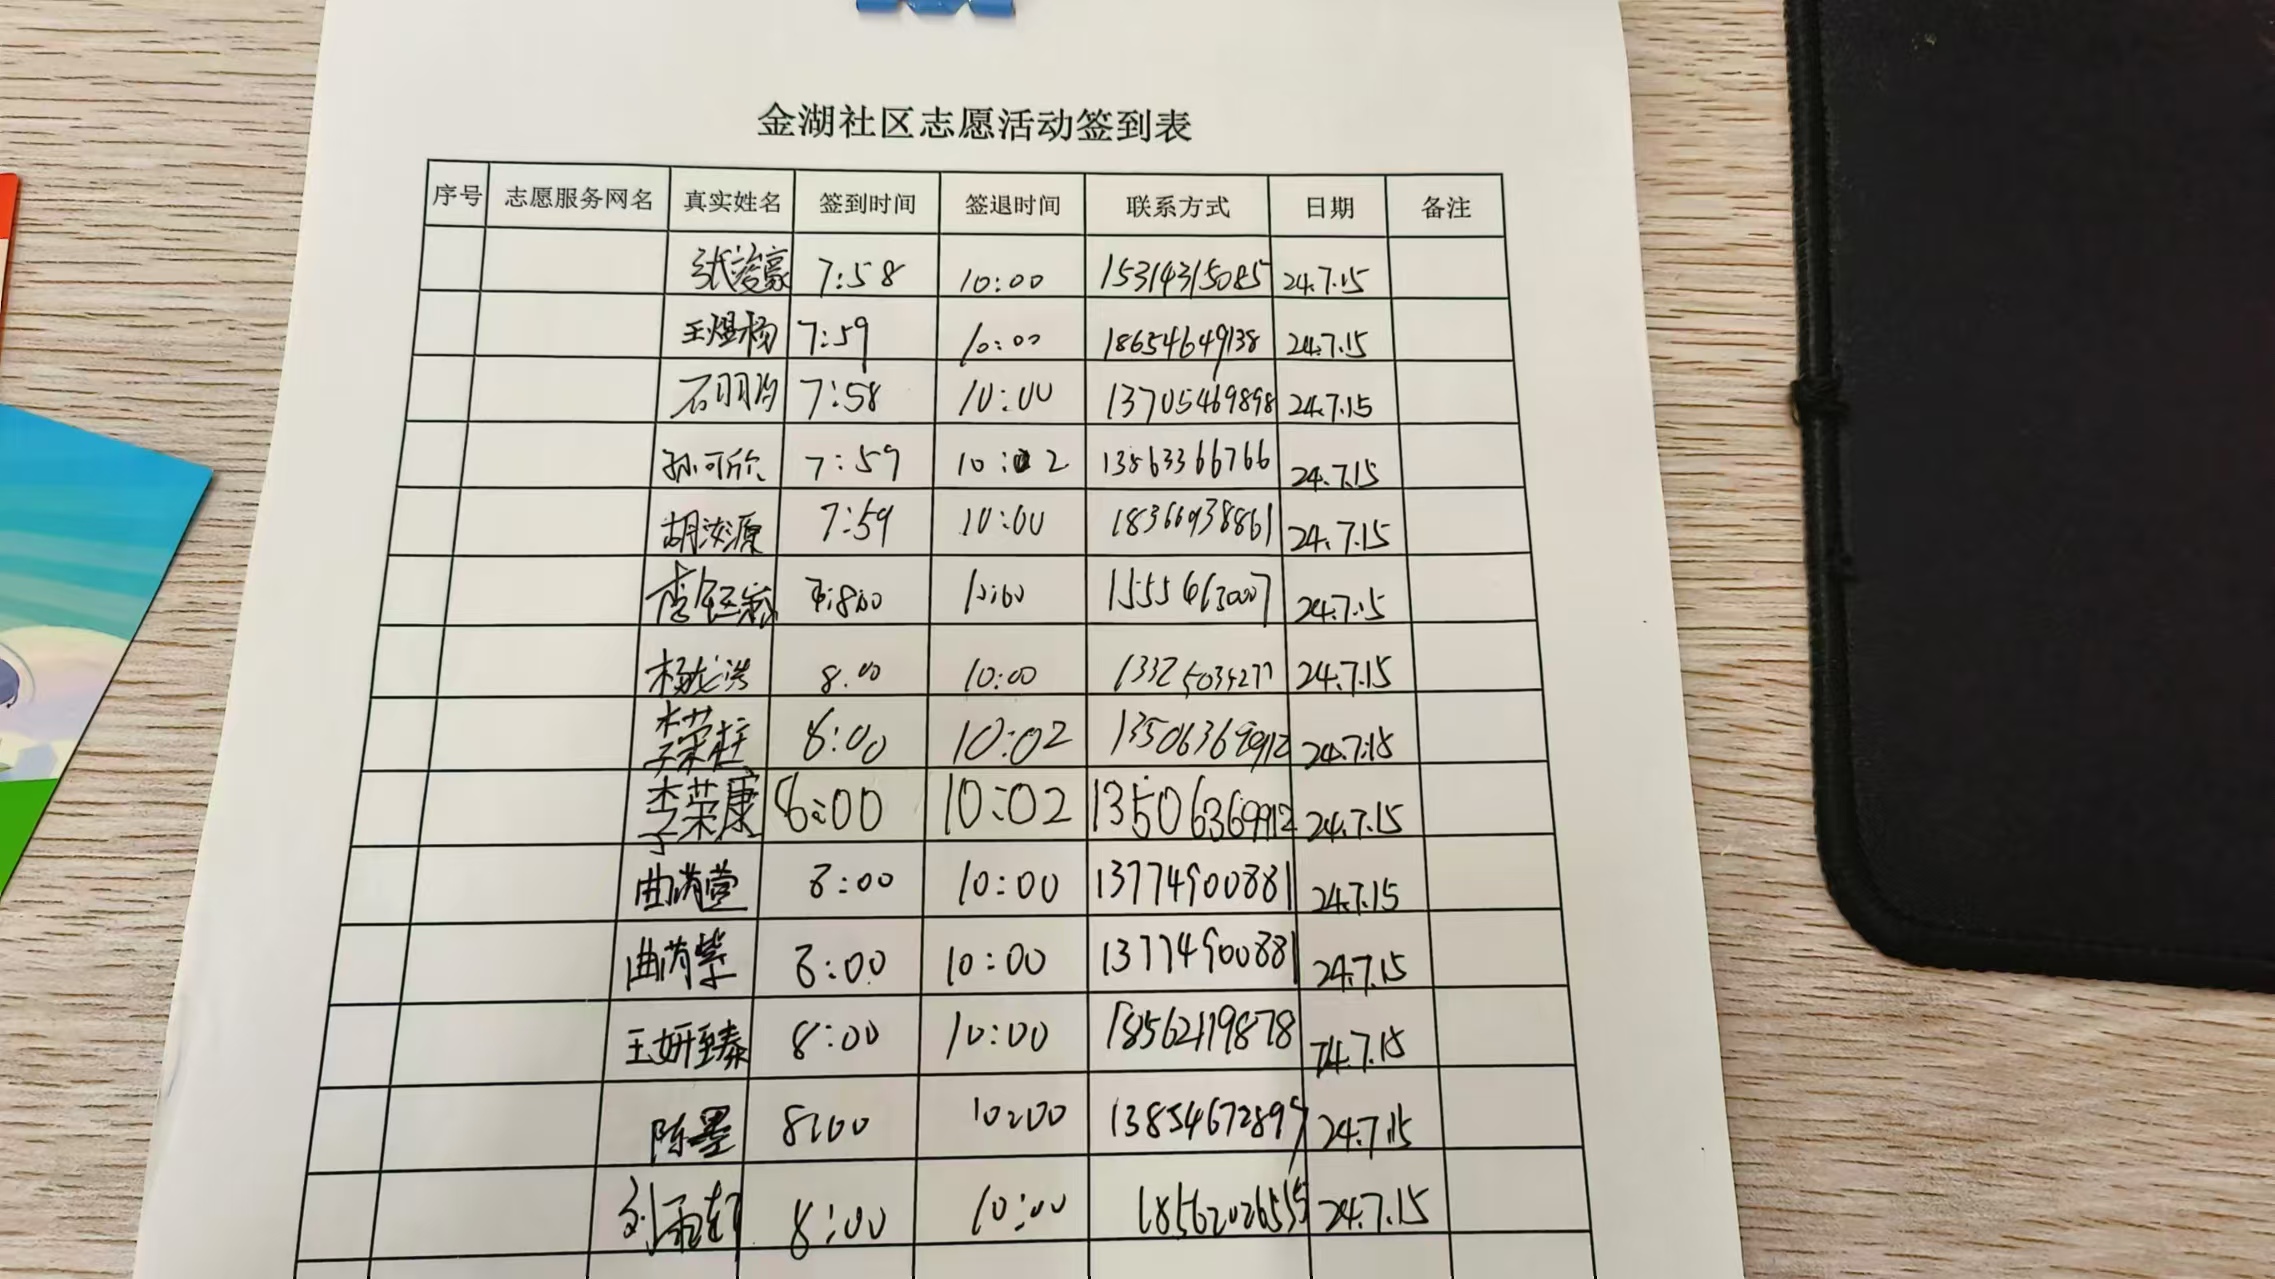 金湖社区志愿活动签到表
序号 志愿服务网名 真实姓名 签到时间 签退时间 联系方式 日期 备注
7:58 10:00 15314315085 24.7.15
王煜杨 7:59 10:00 18654649138 24.7.15
7:58 10:00 13705469898 24.7.15
孙可欣 7:59 10:02 13563366766 24.7.15
7:59 10:00 18366938861 24.7.15
10:00 24.7.15
8:00 10:00 24.7.15
李荣柱 8:00 10:02 13506369912 24.7.15
李荣康 8:00 10:02 13506369912 24.7.15
曲芮萱 8:00 10:00 13774900881 24.7.15
曲芮紫 8:00 10:00 13774900881 24.7.15
王妍臻 8:00 10:00 18562119878 24.7.15
陈墨 8:00 10:00 24.7.15
8:00 10:00 24.7.15